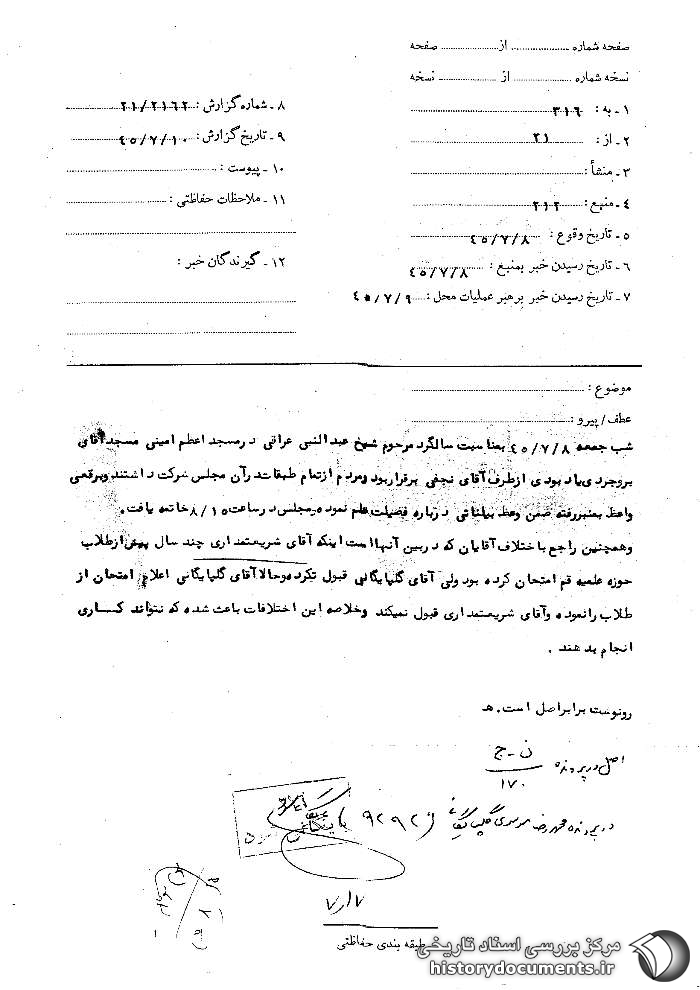 صفحه شماره .......... از .......... صفحه
نسخه شماره .......... از .......... نسخه
۱ـ به : ۳۱۶
۲ـ از : ۲۱
۳ـ منشأ :
۴ـ منبع : ۲۱۲
۵ـ تاریخ وقوع : ۴۵/۷/۸
۶ـ تاریخ رسیدن خبر بمنبع : ۴۵/۷/۸
۷ـ تاریخ رسیدن خبر برهبر عملیات محل : ۴۵/۷/۹
۸ـ شماره گزارش : ۲۱/۲۱۶۲
۹ـ تاریخ گزارش : ۴۵/۷/۱۰
۱۰ـ پیوست :
۱۱ـ ملاحظات حفاظتی :
۱۲ـ گیرندگان خبر :
موضوع :
عطف/پیرو :
شب جمعه ۴۵/۷/۸ بمناسبت سالگرد مرحوم شیخ عبدالنبی عراقی در مسجد اعظم امینی مسجد آقای
بروجردی یادبودی از طرف آقای نجفی برقرار بود و مردم از تمام طبقات در آن مجلس شرکت داشتند و برقعی
واعظ بمنبر رفته ضمن وعظ بیاناتی درباره فضیلت علم نموده و مجلس در ساعت ۸/۱۰ خاتمه یافت.
وهمچنین راجع باختلاف آقایان که در بین آنها است اینکه آقای شریعتمداری چند سال پیش از طلاب
حوزه علمیه قم امتحان کرده بود ولی آقای گلپایگانی قبول نکرد و حالا آقای گلپایگانی اعلام امتحان از
طلاب را نموده و آقای شریعتمداری قبول نمیکند و خلاصه این اختلافات باعث شده که نتوانند کساری
انجام بدهند .
رونوشت برابر اصل است. هـ
اصل در پرونده ن ـ ج
۱۷۰
در پرونده محمدرضا موسوی گلپایگانی (۹۲۹۲) بایگانی شود
۷/۱۷
طبقه بندی حفاظتی
مرکز بررسی اسناد تاریخی
historydocuments.ir